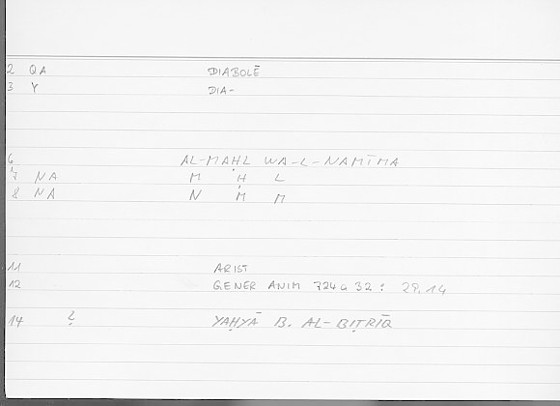 2 QA DIABOLĒ
3 Y DIA-
6 AL-MAḤL WA-L-NAMĪMA
7 NA M Ḥ L
8 NA N M M
11 ARIST
12 GENER ANIM 724a32: 29,14
14 YAḤYĀ B. AL-BIṬRĪQ